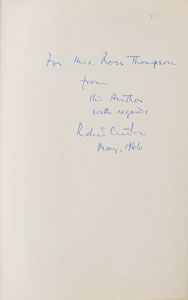 For Mrs. Rose Thompson
from
the Author
with regards
Robert
May, 1966